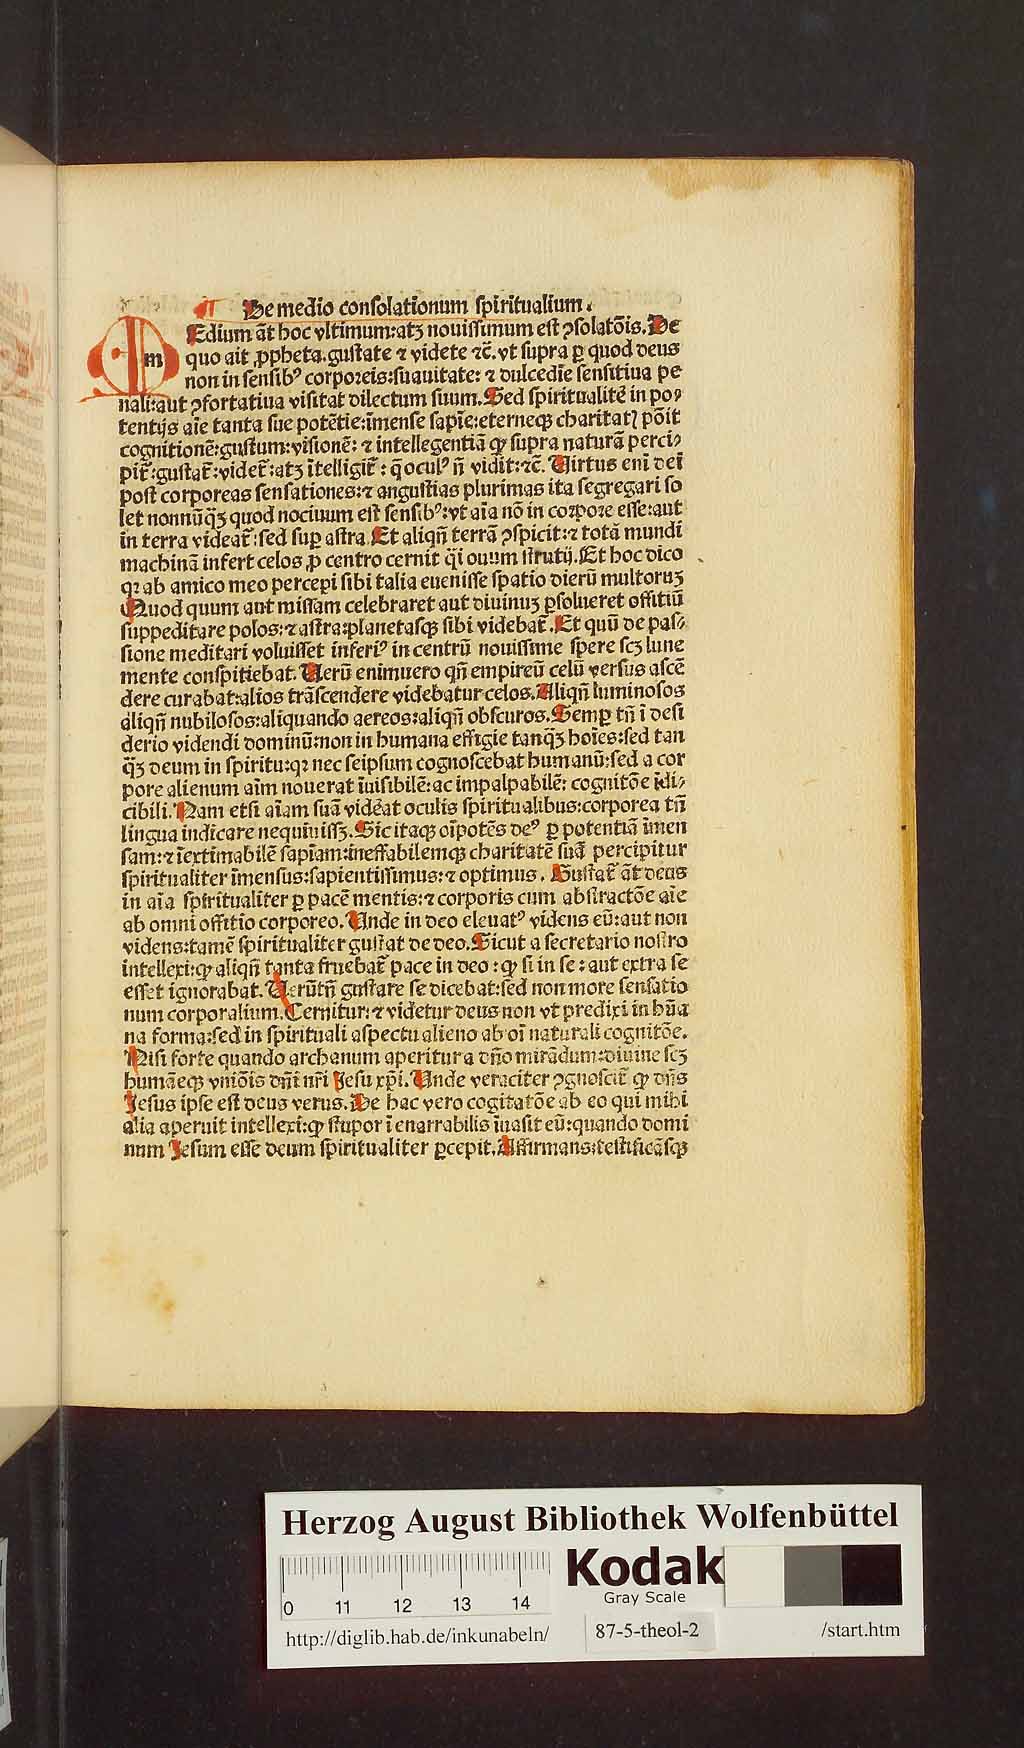 ¶ De medio consolationum spiritualium.
MEdium āt hoc vltimum:atq; nouissimum est ꝯsolatōis. De
quo ait ꝓpheta. gustate ⁊ videte ⁊c̄. vt supra ꝑ quod deus
non in sensibꝰ corporeis:suauitate: ⁊ dulcedīe sensitiua pe
nali:aut ꝯfortatiua visitat dilectum suum. Sed spiritualitē in po⸗
tentijs aīe tanta sue potētie:īmense sapīe:eterneqꝫ charitatꝭ pōit
cognitionē:gustum:visionē: ⁊ intellegentiā ꝙ supra naturā perci⸗
pit̄:gustat̄:videt̄:atqꝫ ītelligit̄: q̄ oculꝰ n̄ vidit:⁊c̄. Uirtus enī dei
post corporeas sensationes:⁊ angustias plurimas ita segregari so
let nonnūqꝫ quod nociuum est sensibꝰ:vt aīa nō in corpore esse:aut
in terra videat̄:sed suꝑ astra. Et aliqn̄ terrā ꝯspicit:⁊ totā mundi
machinā infert celos ꝓ centro cernit q̄i ouum strutij. Et hoc dico
qꝛ ab amico meo percepi sibi talia euenisse spatio dierū multoruꝫ
Quod quum aut missam celebraret aut diuinuꝫ ꝑsolueret offitiū
suppeditare polos:⁊ astra:planetasqꝫ sibi videbat̄. Et quū de pas⸗
sione meditari voluisset inferiꝰ in centrū nouissime spere scꝫ lune
mente conspitiebat. Uerū enimuero qn̄ empireū celū versus ascē
dere curabat:alios trāscendere videbatur celos. Aliqn̄ luminosos
aliqn̄ nubilosos:aliquando aereos:aliqn̄ obscuros. Semꝑ tn̄ ī desi
derio videndi dominū:non in humana effigie tanqꝫ hoīes:sed tan
q̄ꝫ deum in spiritu:qꝛ nec seipsum cognoscebat humanū:sed a cor
pore alienum aīm nouerat īuisibilē:ac impalpabilē: cognitōe īdi⸗
cibili. Nam etsi aīam suā vidēat oculis spiritualibus:corporea tn̄
lingua indicare nequiuissꝫ. Sic itaqꝫ oīpotēs deꝰ ꝑ potentiā īmen
sam:⁊ īextimabilē sapīam:ineffabilemqꝫ charitatē suā percipitur
spiritualiter īmensus:sapientissimus:⁊ optimus. Gustat̄ āt deus
in aīa spiritualiter ꝑ pacē mentis:⁊ corporis cum abstractōe aīe
ab omni offitio corporeo. Unde in deo eleuatꝰ videns eū:aut non
videns:tamē spiritualiter gustat de deo. Sicut a secretario nostro
intellexi:ꝙ aliqn̄ tanta fruebat̄ pace in deo: ꝙ si in se: aut extra se
esset ignorabat. Uerūtn̄ gustare se dicebat:sed non more sensatio
num corporalium. Cernitur:⁊ videtur deus non vt predixi in hūa
na forma:sed in spirituali aspectu alieno ab oī naturali cognitōe.
Nisi forte quando archanum aperitur a dn̄o mirādum:diuine scꝫ
humāeqꝫ vniōis dn̄i nr̄i Jesu xp̄i. Unde veraciter ꝯgnoscit̄ ꝙ dn̄s
Jesus ipse est deus verus. De hac vero cogitatōe ab eo qui mihi
alia aperuit intellexi:ꝙ stupor ī enarrabilis īuasit eū:quando domi
num Jesum esse deum spiritualiter ꝑcepit. Affirmans:testificāsqꝫ
Herzog August Bibliothek Wolfenbüttel
Kodak
Gray Scale
0 11 12 13 14
http://diglib.hab.de/inkunabeln/ 87-5-theol-2 /start.htm